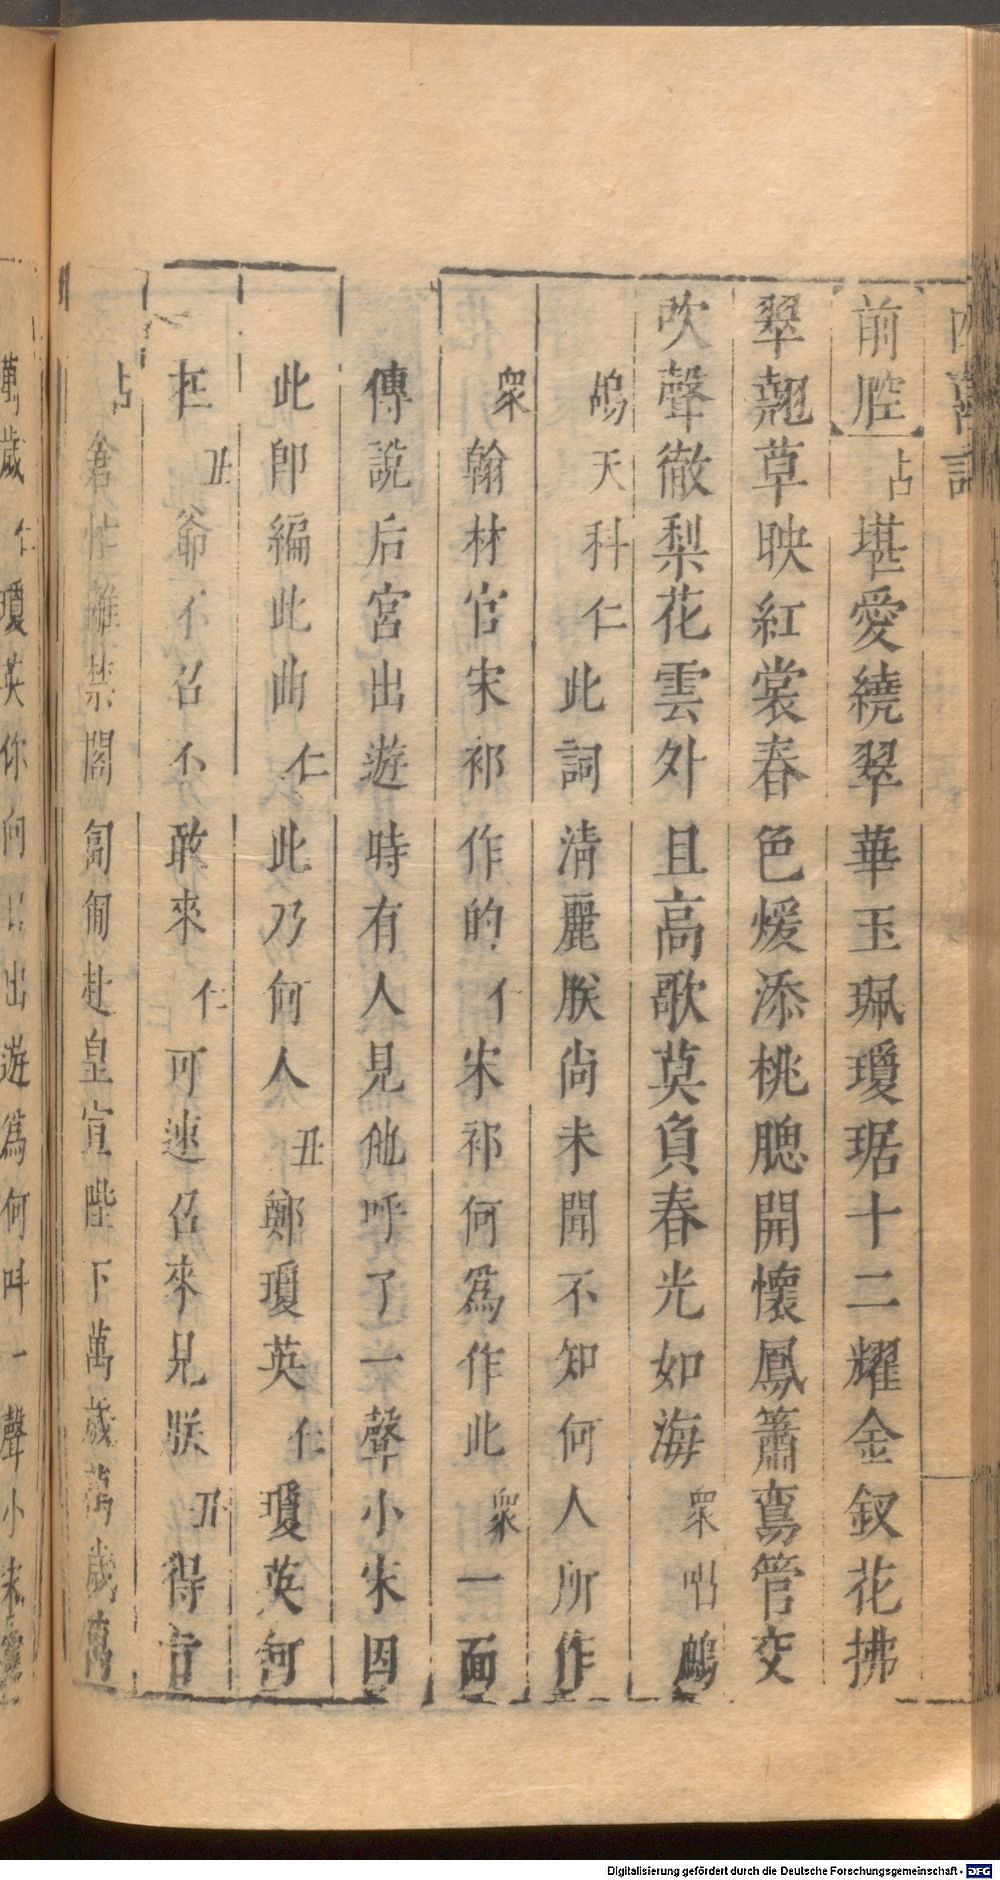 前腔占堪愛繞翠華玉珮瓊琚十二耀金釵花拂
翠翹草映紅裳春色煖添桃腮開懷鳳簫鸞管交
吹聲徹梨花雲外且高歌莫負春光如海衆唱鷓
鴣天科仁此詞淸麗朕尙未聞不知何人所作
衆翰林官宋祁作的仁宋祁何爲作此衆一面
傳說后宮出遊時有人見他呼了一聲小宋因
此卽編此曲仁此乃何人丑鄭瓊英仁瓊英何
在丑爺不召不敢來仁可速召來見朕丑得旨
占倉忙離禁閣匍匐赴皇宣陛下萬歲萬歲萬
萬歲仁瓊英你向日出遊爲何叫一聲小宋
Digitalisierung gefördert durch die Deutsche Forschungsgemeinschaft - DFG